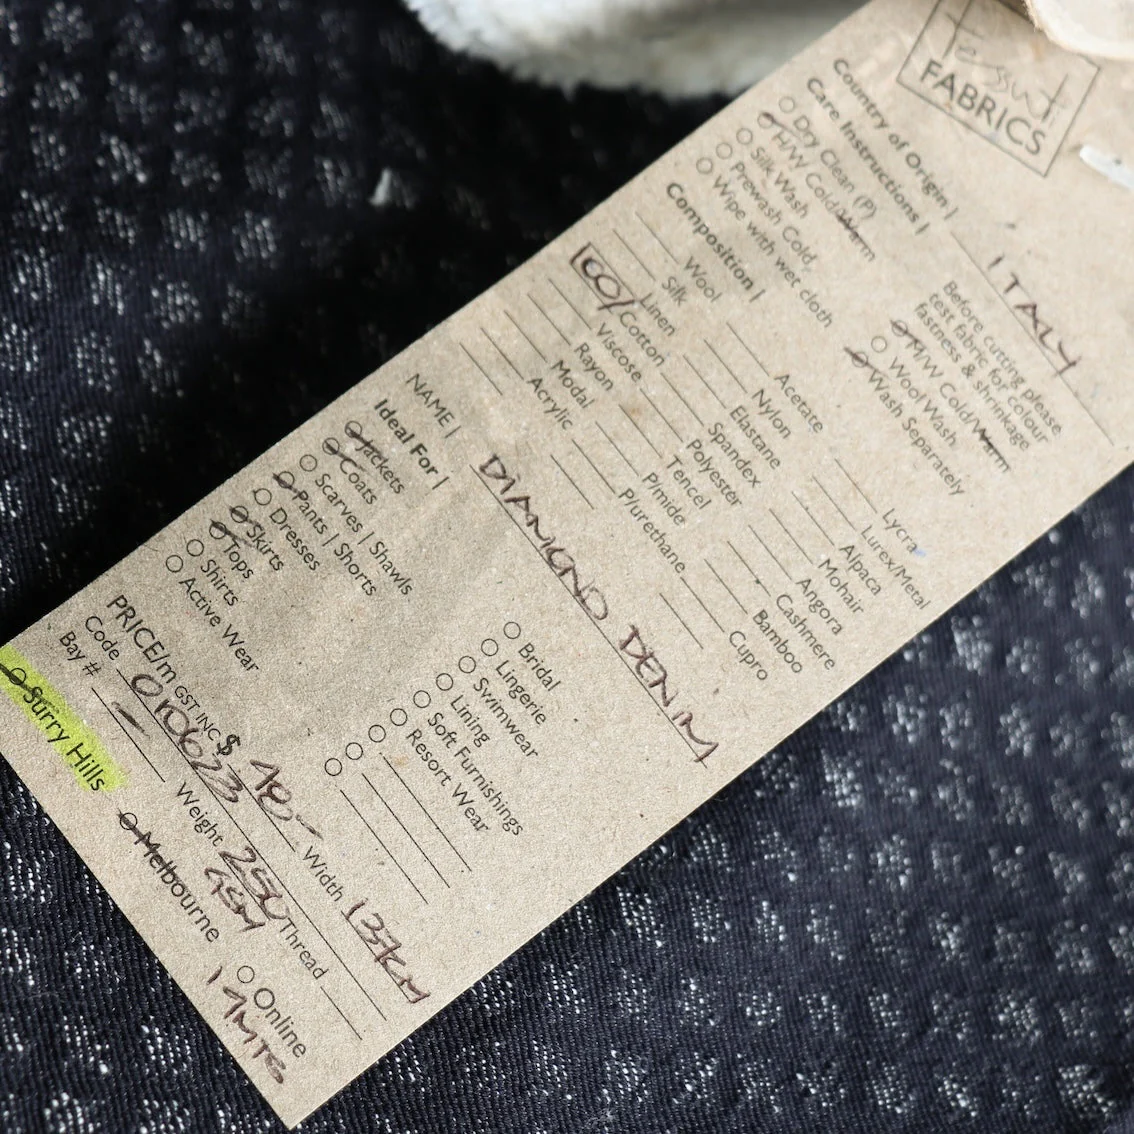 Tessuti
FABRICS
Country of Origin | ITALY
Care Instructions |
Dry Clean (P)
H/W Cold/Warm
Silk Wash
Prewash Cold
Wipe with wet cloth
Before cutting please
test fabric for colour
fastness & shrinkage
M/W Cold/Warm
Wool Wash
Wash Separately
Composition |
Wool
Silk
Linen
Cotton
Viscose
Rayon
Modal
Acrylic
Acetate
Nylon
Elastane
Spandex
Polyester
Tencel
P/mide
P/urethane
Lycra
Lurex/Metal
Alpaca
Mohair
Angora
Cashmere
Bamboo
Cupro
NAME | DIAMOND DENIM
Ideal For |
Jackets
Coats
Scarves | Shawls
Pants | Shorts
Dresses
Skirts
Tops
Shirts
Active Wear
Bridal
Lingerie
Swimwear
Lining
Soft Furnishings
Resort Wear
PRICE/m GST INC $ 48.— Width 137CM
Code 010623 Weight 250 GSM Thread
Bay # —
Surry Hills
Melbourne
Online
19MTS